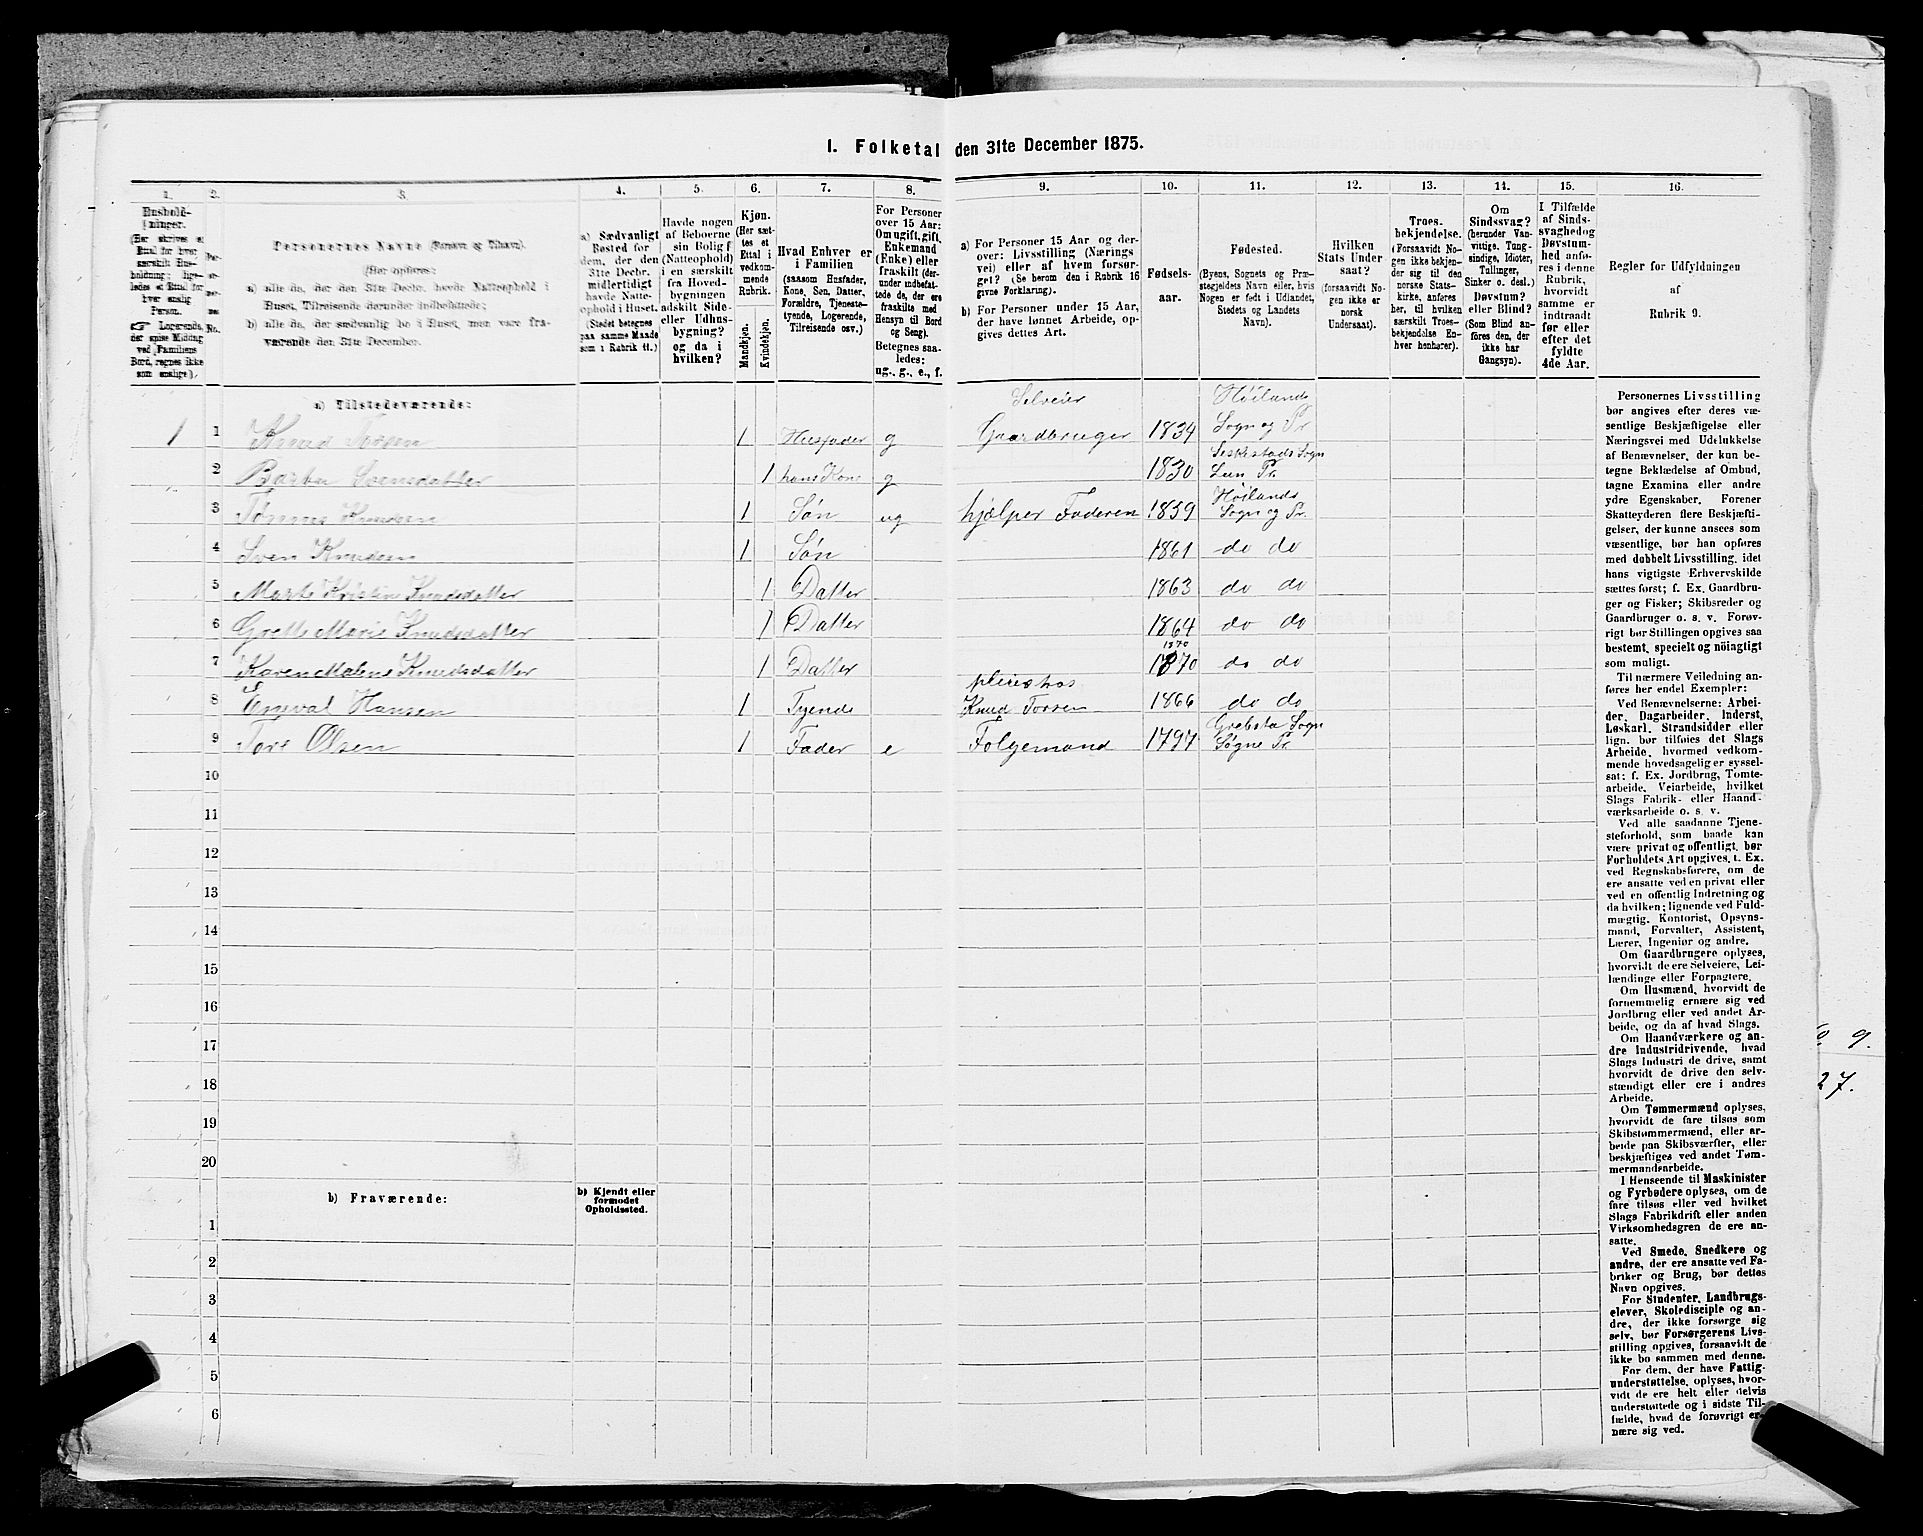 1. Folketal den 31te December 1875.
1. 2. 3. 4. 5. 6. 7. 8. 9. 10. 11. 12. 13. 14. 15. 16.
Hushold-
ninger.
(Her skrives et
Ettal for hver
særskilt Hus-
holdning; lige-
ledes et Ettal for
hver enslig
Person.
☞ Logerende,
der spise Middag
ved Familiens
Bord, regnes ikke
som enslige).
Personernes Navne (Fornavn og Tilnavn).
(Her opføres:
a) alle de, der den 31te Decbr. havde Natteophold i
Huset, Tilreisende derunder indbefattede;
b) alle de, der sædvanlig bo i Huset, men vare fra-
værende den 31te December.
a) Sædvanligt
Bosted for
dem, der den
31te Decbr.
midlertidigt
havde Natte-
ophold i Huset.
(Stedet betegnes
paa samme Maade
som i Rubrik 11.)
Havde nogen
af Beboerne
sin Bolig
(Natteophold)
i en særskilt
fra Hoved-
bygningen
adskilt Side-
eller Udhus-
bygning?
og da i
hvilken?
Kjøn.
(Her sæt-
tes et
Ettal i
vedkom-
mende
Rubrik.
Mandkjøn.
Kvindekjøn.
Hvad Enhver er
i Familien
(saasom Husfader,
Kone, Søn, Datter,
Forældre, Tjeneste-
tyende, Logerende,
Tilreisende osv.)
For Personer
over 15 Aar:
Om ugift, gift,
Enkemand
(Enke) eller
fraskilt (der-
under indbefat-
tede de, der ere
fraskilte med
Hensyn til Bord
og Seng).
Betegnes saa-
ledes:
ug., g., e., f.
a) For Personer 15 Aar og der-
over: Livsstilling (Nærings
vei) eller af hvem forsør-
get? (Se herom den i Rubrik 16
givne Forklaring).
b) For Personer under 15 Aar,
der have lønnet Arbeide, op-
gives dettes Art.
Fødsels-
aar.
Fødested.
(Byens, Sognets og Præ-
stegjeldets Navn eller, hvis
Nogen er født i Udlandet,
Stedets og Landets
Navn).
Hvilken
Stats Under
saat?
(forsaavidt No-
gen ikke er
norsk
Undersaat).
Troes-
bekjendelse.
(Forsaavidt No-
gen ikke bekjen-
der sig til den
norske Stats-
kirke, anføres
her, til hvilken
særskilt Troes-
bekjendelse En-
hver henhører).
Om
Sindssvag?
(herunder Van-
vittige, Tung-
sindige, Idioter,
Tullinger,
Sinker o. desl.)
Døvstum?
eller Blind?
(Som Blind an-
føres den, der
ikke har
Gangsyn).
I Tilfælde
af Sinds-
svaghed og
Døvstum-
hed anfø-
res i denne
Rubrik,
hvorvidt
samme er
indtraadt
før eller
efter det
fyldte
4de Aar.
Regler for Udfyldningen
af
Rubrik 9.
a) Tilstedeværende:
Selveier Høilands
1 1 Knud 1 Husfader g Gaardbruger 1834 Sogn og Pr
Sogn
2 Svensdatter 1 hans Kone g 1830 Pr.
Høilands
3 Tønnes Knudsen 1 Søn ug hjælper Faderen 1859 Sogn og Pr.
4 Sven Knudsen 1 Søn 1861 do do
5 Marte Kristine Knudsdatter 1 Datter 1863 do do
6 Grette Marie Knudsdatter 1 Datter 1864 do do
1870
7 Karen Malene Knudsdatter 1 Datter 1870 do do
pleies hos
8 Hansen 1 Tyende Knud Torsen 1866 do do
Sogn
9 Tore Olsen 1 Fader e Følgemand 1797 Søgne Pr.
10
11
12
13
14
15
16
17
18
19
20
b) Fraværende:
b) Kjendt eller
formodet
Opholdssted.
1
2
3
4
5
6
Personernes Livsstilling
bør angives efter deres væ-
sentlige Beskjæftigelse eller
Næringsvei med Udelukkelse
af Benævnelser, der kun be-
tegne Beklædelse af Ombud,
tagne Examina eller andre
ydre Egenskaber. Forener
Skatteyderen flere Beskjæfti-
gelser, der kunne ansees som
væsentlige, bør han opføres
med dobbelt Livsstilling, idet
hans vigtigste Erhvervskilde
sættes først; f. Ex. Gaardbru-
ger og Fisker; Skibsreder og
Gaardbruger o. s. v. Forøv-
rigt bør Stillingen opgives saa
bestemt, specielt og nöiagtigt
som muligt.
Til nærmere Veiledning an-
føres her endel Exempler:
Ved Benævnelserne: Arbei-
der, Dagarbeider, Inderst,
Løskarl, Strandsidder eller
lign. bør tilføies det Slags
Arbeide, hvormed vedkom-
mende hovedsagelig er syssel-
sat; f. Ex. Jordbrug, Tomte-
arbeide, Veiarbeide, hvilket
Slags Fabrik- eller Haand-
værksarbeide o. s. v.
Ved alle saadanne Tjene-
steforhold, som baade kan
være privat og offentligt, bør
Forholdets Art opgives, t. Ex.
ved Regnskabsførere, om de
ere ansatte ved en privat eller
ved en offentlig Indretning og
da hvilken; lignende ved Fuld-
mægtig, Kontorist, Opsyns-
mand, Forvalter, Assistent,
Lærer, Ingeniør og andre.
Om Gaardbrugere oplyses,
hvorvidt de ere Selveiere, Lei-
lændinge eller Forpagtere.
Om Husmænd, hvorvidt de
fornemmelig ernære sig ved
Jordbrug eller ved andet Ar-
beide, og da af hvad Slags.
Om Haandværkere og an-
dre Industridrivende, hvad
Slags Industri de drive, samt
hvorvidt de drive den selv-
stændigt eller ere i andres
Arbeide.
Om Tømmermænd oplyses,
hvorvidt de fare tilsøs som
Skibstømmermænd, eller ar-
beide paa Skibsværfter, eller
beskjæftiges ved andet Tøm-
mermandsarbeide.
I Henseende til Maskinister
og Fyrbødere oplyses, om de
fare tilsøs eller ved hvilket
Slags Fabrikdrift eller anden
Virksomhedsgren de ere an-
satte.
Ved Smede, Snedkere og
andre, der ere ansatte ved Fa-
briker og Brug, bør dettes
Navn opgives.
For Studenter, Landbrugs-
elever, Skoledisciple og an-
dre, der ikke forsørge sig
selv, bør Forsørgerens Livs-
stilling opgives, forsaavidt de
ikke bo sammen med denne.
For dem, der have Fattig-
understøttelse, oplyses, hvor-
vidt de ere helt eller delvis
understøttede og i sidste Til-
fælde, hvad de forøvrigt er-
nære sig ved.
9.
27.